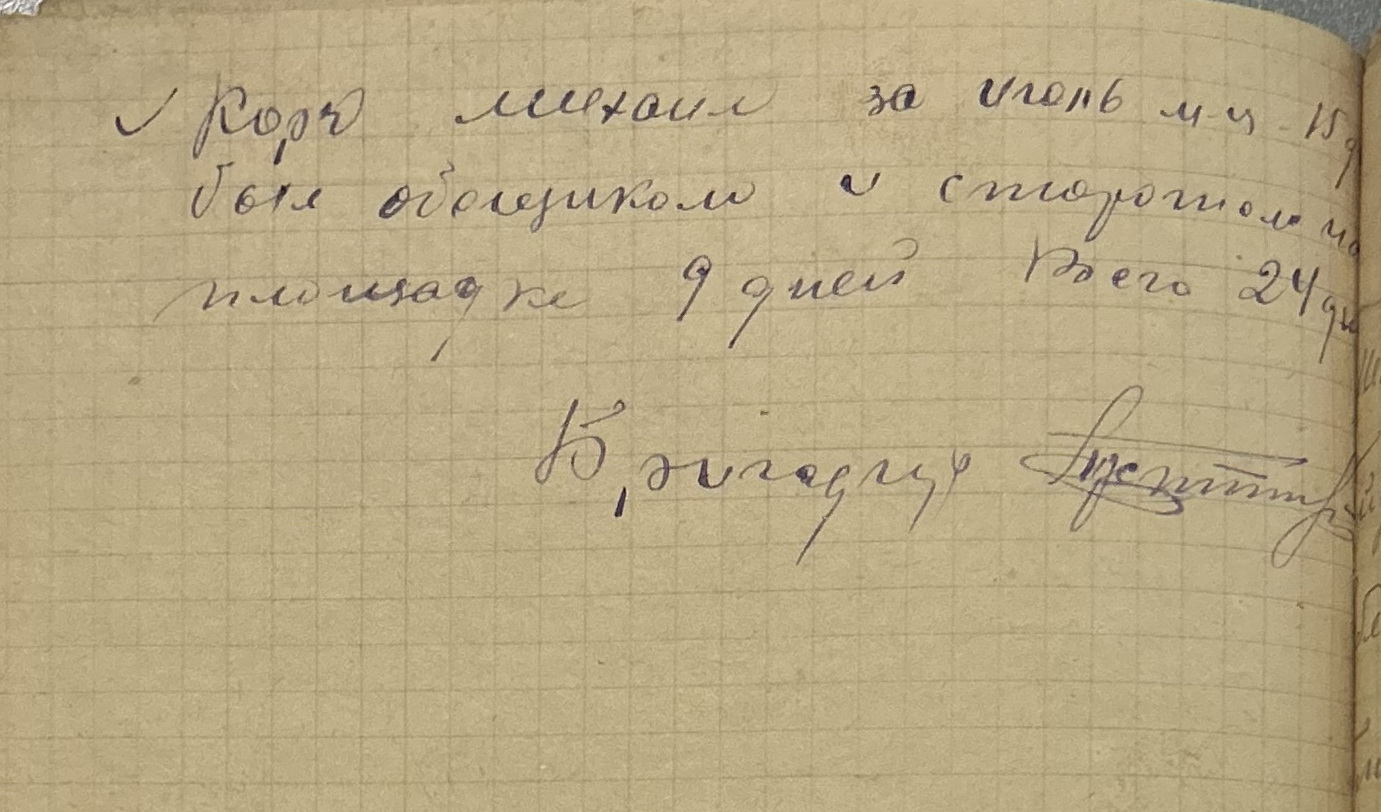 ✓ Корж Михаил за июнь м-ц 15 д
был объещиком и сторожом на
площадке 9 дней Всего 24 дн
Бригадир